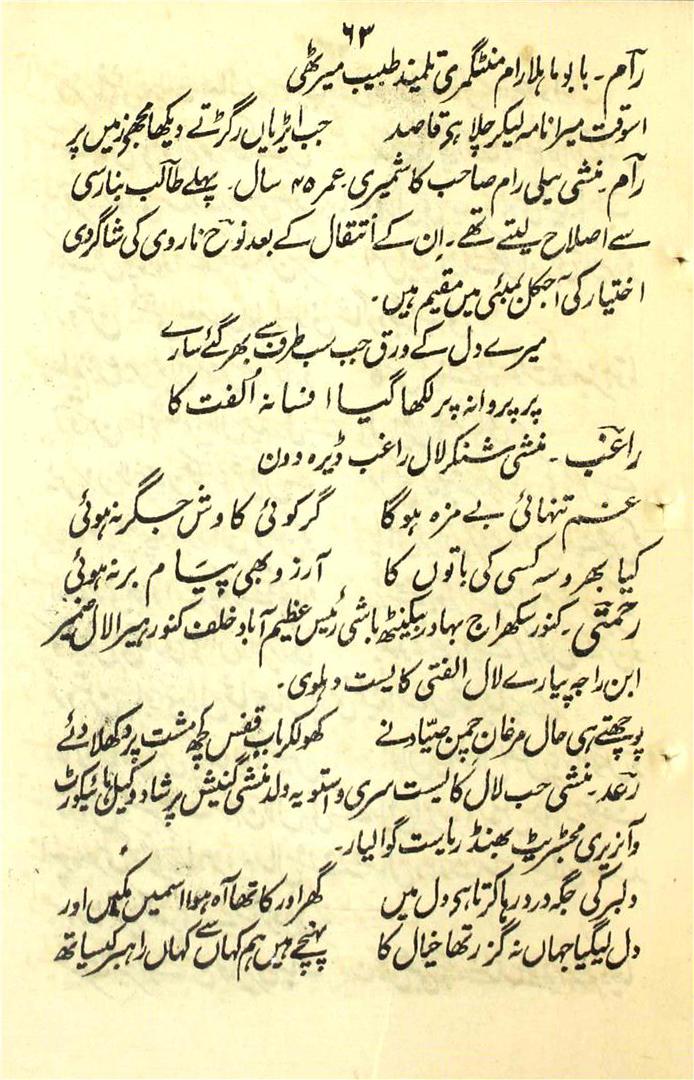 ۶۳
رآم ۔ بابو ماہلا رام منٹگمری تلمیذ طبیب میرٹھی
اسوقت میرا نامہ لیکر چلا ہی قاصد جب ایڑیاں رگڑتے دیکھا مجھو زمیں پر
رآم ۔ منشی بیلی رام صاحب کاشمیری عمر ۴۵ سال ۔ پہلے طالب بنارسی
سے اصلاح لیتے تھے ۔ ان کے انتقال کے بعد نوح ناروی کی شاگردی
اختیار کی آجکل بمبئی میں مقیم ہیں ۔
میرے دل کے ورق جب سب طرف سے بھر گئے سارے
پر پروانہ پر لکھا گیا افسانہ اُلفت کا
راغب ۔ منشی شنکر لال راغب ڈیرہ دون
غم تنہائی بے مزہ ہوگا گر کوئی کاوش جگر نہ ہوئی
کیا بھروسہ کسی کی باتوں کا آرزو بھی پیام بر نہ ہوئی
رحمتی ۔ کنور سکھراج بہادر بیکنٹھ باشی رئیس عظیم آباد خلف کنور ہیرا لال ضمیر
ابن راجہ پیارے لال الفتی کایست دہلوی ۔
پوچھتے ہی حال مرغانِ چمن صیاد نے کھولکر باب قفس کچھ مشت پر دکھلا دئے
رعد ۔ منشی حب لال کایست سری واستویہ ولد منشی گنیش پرشاد وکیل ہائیکورٹ
و آنریری مجسٹریٹ بھنڈ ریاست گوالیار ۔
دلبر کی جگہ درد رہا کرتا ہی دل میں گھر اور کا تھا آہ ہوا اسمیں مکیں اور
دل لیگیا جہاں نہ گزر تھا خیال کا پہنچے ہیں ہم کہاں سے کہاں راہبر کیساتھ